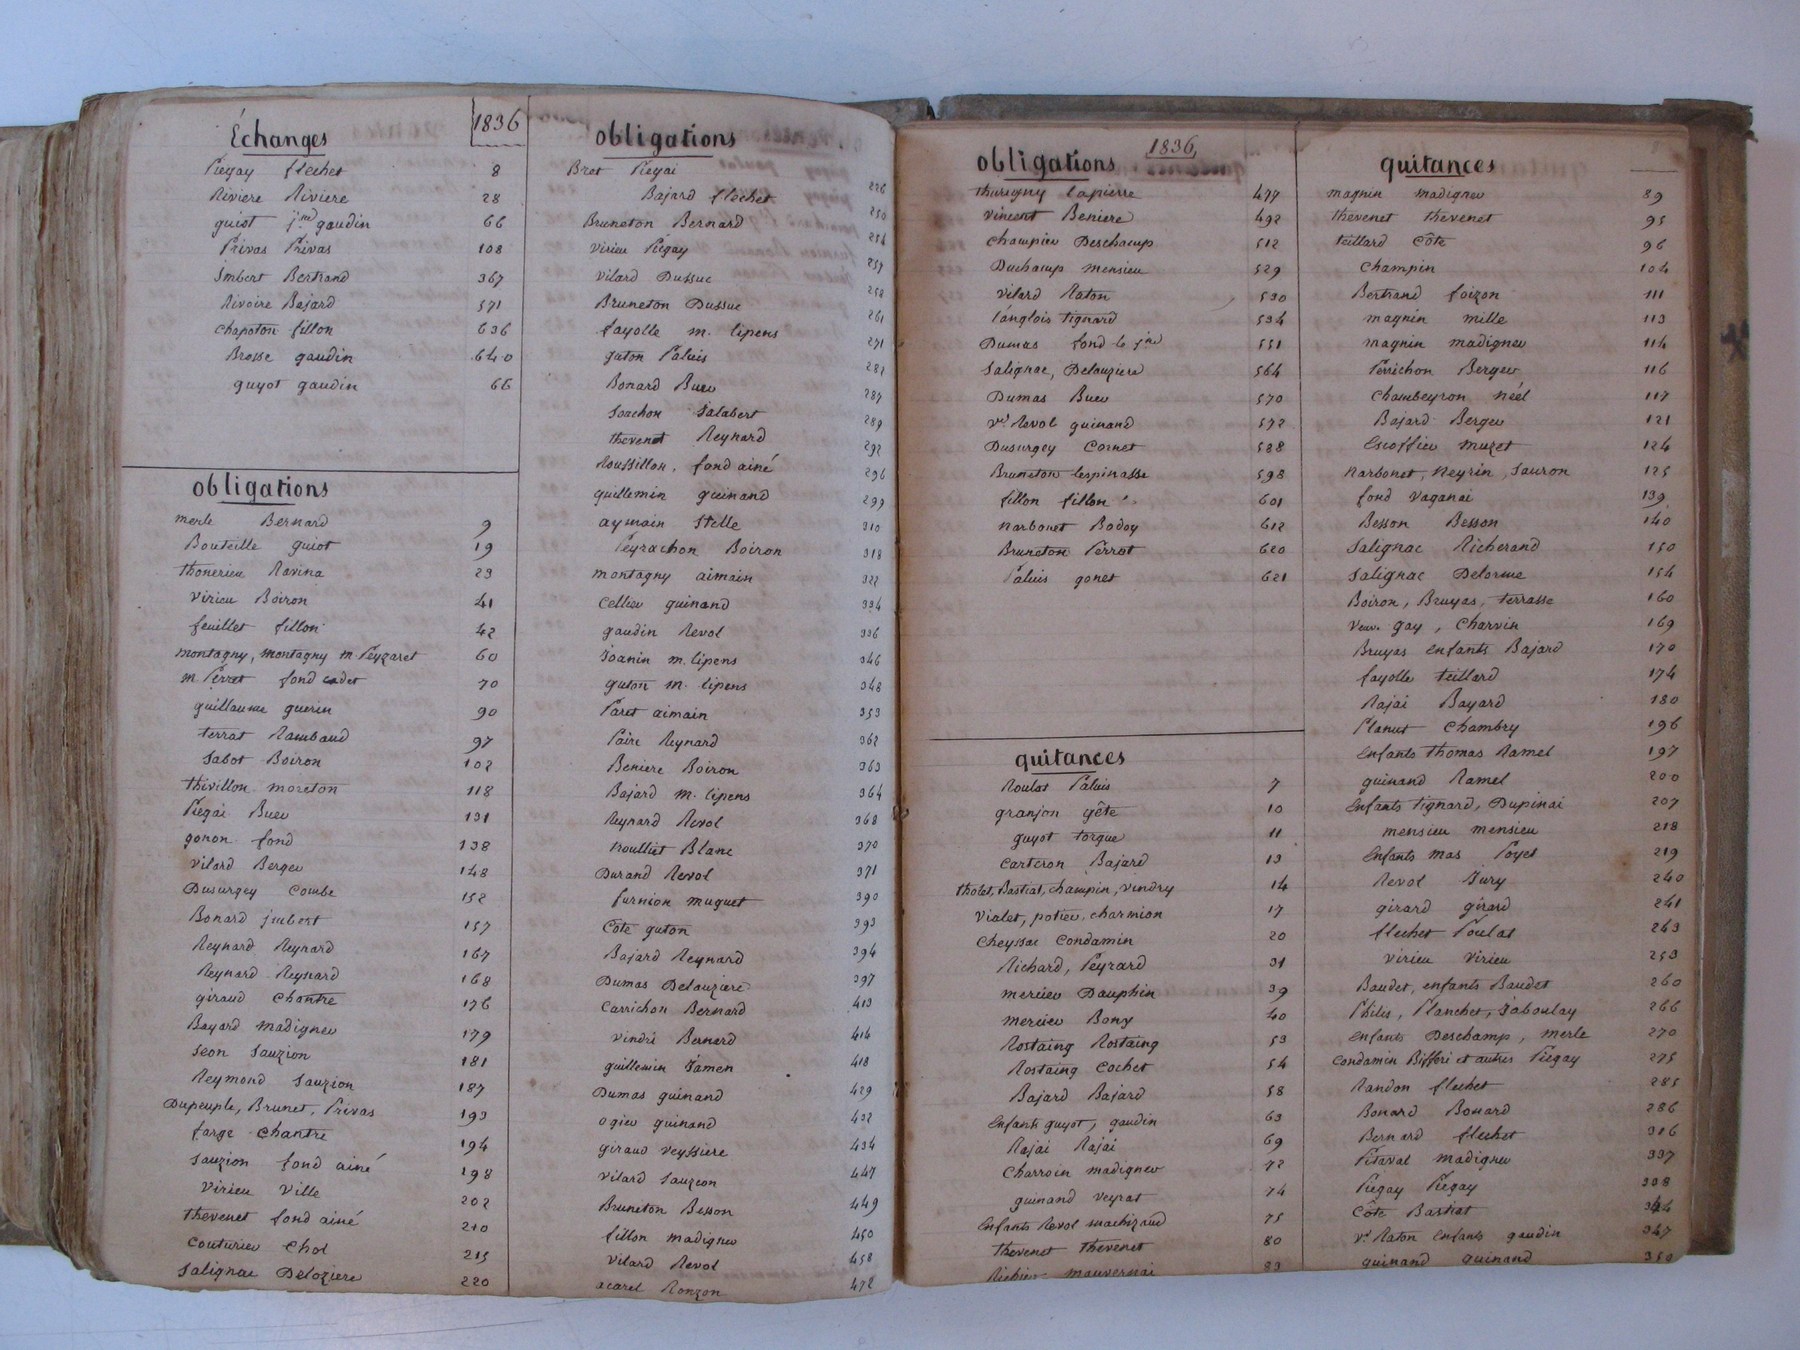 1836
Échanges
Piegay flechet 8
Riviere Riviere 28
guiot j.ne gaudin 66
Privas Privas 108
Imbert Bertrand 367
Rivoire Bajard 571
Chapoton fillon 636
Brosse gaudin 640
guyot gaudin 66
obligations
merle Bernard 9
Bouteille guiot 19
thonerieu Ravina 23
Virieu Boiron 41
feuillet fillon 42
montagny, montagny m. Peyzaret 60
m. Perret fond cadet 70
guillaume guerin 90
terrat Rambaud 97
Sabot Boiron 102
thivillon moreton 118
Piegai Buer 131
gonon fond 138
Vilard Berger 148
Dusurgey Combe 152
Bonard jmbert 157
Reynard Reynard 167
Reynard Reynard 168
giraud Chantre 176
Bayard madigner 179
Jeon Sauzion 181
Reymond Sauzion 187
Dupeuple, Brunet, Privas 193
farge Chantre 194
Sauzion fond ainé 198
Virieu Ville 202
thevenet fond ainé 210
Couturier Chol 215
Salignac Deloziere 220
obligations
Bret Piegai 226
Bajard flechet 250
Bruneton Bernard 254
Virieu Piegay 257
Vilard Dussuc 258
Bruneton Dussuc 261
fayolle m. lipens 271
guton Paluis 282
Bonard Buer 287
Joachon Jalabert 289
thevenet Reynard 292
Roussillon, fond ainé 296
guillemin guinand 299
aymain Stelle 310
Peyrachon Boiron 318
montagny aimain 322
Cellier guinand 334
gaudin Revol 336
Joanin m. lipens 346
guton m. lipens 348
Paret aimain 353
Paire Reynard 362
Beniere Boiron 363
Bajard m. lipens 364
Reynard Revol 368
trouilliet Blanc 370
Durand Revol 371
furnion muguet 390
Côte guton 393
Bajard Reynard 394
Dumas Delauziere 397
Carrichon Bernard 413
Vindri Bernard 416
guillemin Jamen 418
Dumas guinand 429
ogier guinand 432
giraud Veyssiere 434
Vilard Sauzeon 447
Bruneton Besson 449
fillon madigner 450
Vilard Revol 458
acarel Ronzon 472
1836
obligations
thurigny lapierre 477
Vincent Beniere 492
Champier Deschamp 512
Duchamp mensieu 529
Vilard Raton 530
langlois tignard 534
Dumas fond le j.ne 551
Salignac, Delauziere 564
Dumas Buer 570
v.e Revol guinand 572
Dusurgey Cornet 588
Bruneton lespinasse 598
fillon fillon 601
Narbonet Bodoy 612
Bruneton Perrot 620
Paluis gonet 621
quitances
Roulat Paluis 7
granjon gête 10
guyot torgue 11
Carteron Bajard 13
tholet, Bastiat, champin, Vindry 14
Vialet, potier, charmion 17
Cheyssac Condamin 20
Richard, Peyrard 31
mercier Dauphin 39
mercier Bony 40
Rostaing Rostaing 53
Rostaing Cochet 54
Bajard Bajard 58
Enfants guyot, gaudin 63
Rajai Rajai 69
Charroin madigner 72
guinand Veyrat 74
Enfants Revol machizaud 75
thevenet thevenet 80
mauvernai 83
quitances
magnin madigner 89
thevenet thevenet 95
teillard Côte 96
Champin 104
Bertrand foizon 111
magnin mille 113
magnin madigner 114
Perrichon Berger 116
Chambeyron Néel 117
Bajard Berger 121
Escoffier muzet 124
Narbonet, Neyrin, Sauron 125
fond Vaganai 139
Besson Besson 140
Salignac Richerand 150
Salignac Delorme 154
Boiron, Bruyas, terrasse 160
Veuv. gay, Charvin 169
Bruyas enfants Bajard 170
fayolle teillard 174
Rajai Bayard 180
Planut Chambry 196
Enfants thomas Ramel 197
guinand Ramel 200
Enfants tignard, Dupinai 207
mensieu mensieu 218
Enfants mas Poyet 219
Revol Jury 240
girard girard 241
flechet Poulat 243
Virieu Virieu 253
Baudet, enfants Baudet 260
Philis, Planchet, Jaboulay 266
Enfants Deschamp, merle 270
Condamin Bifferi et autres Piegay 275
Randon flechet 285
Bonard Bonard 286
Bernard flechet 316
Pitaval madigner 337
Piegay Piegay 338
Côte Bastiat 344
v.e Raton Enfants gaudin 347
guinand guinand 350